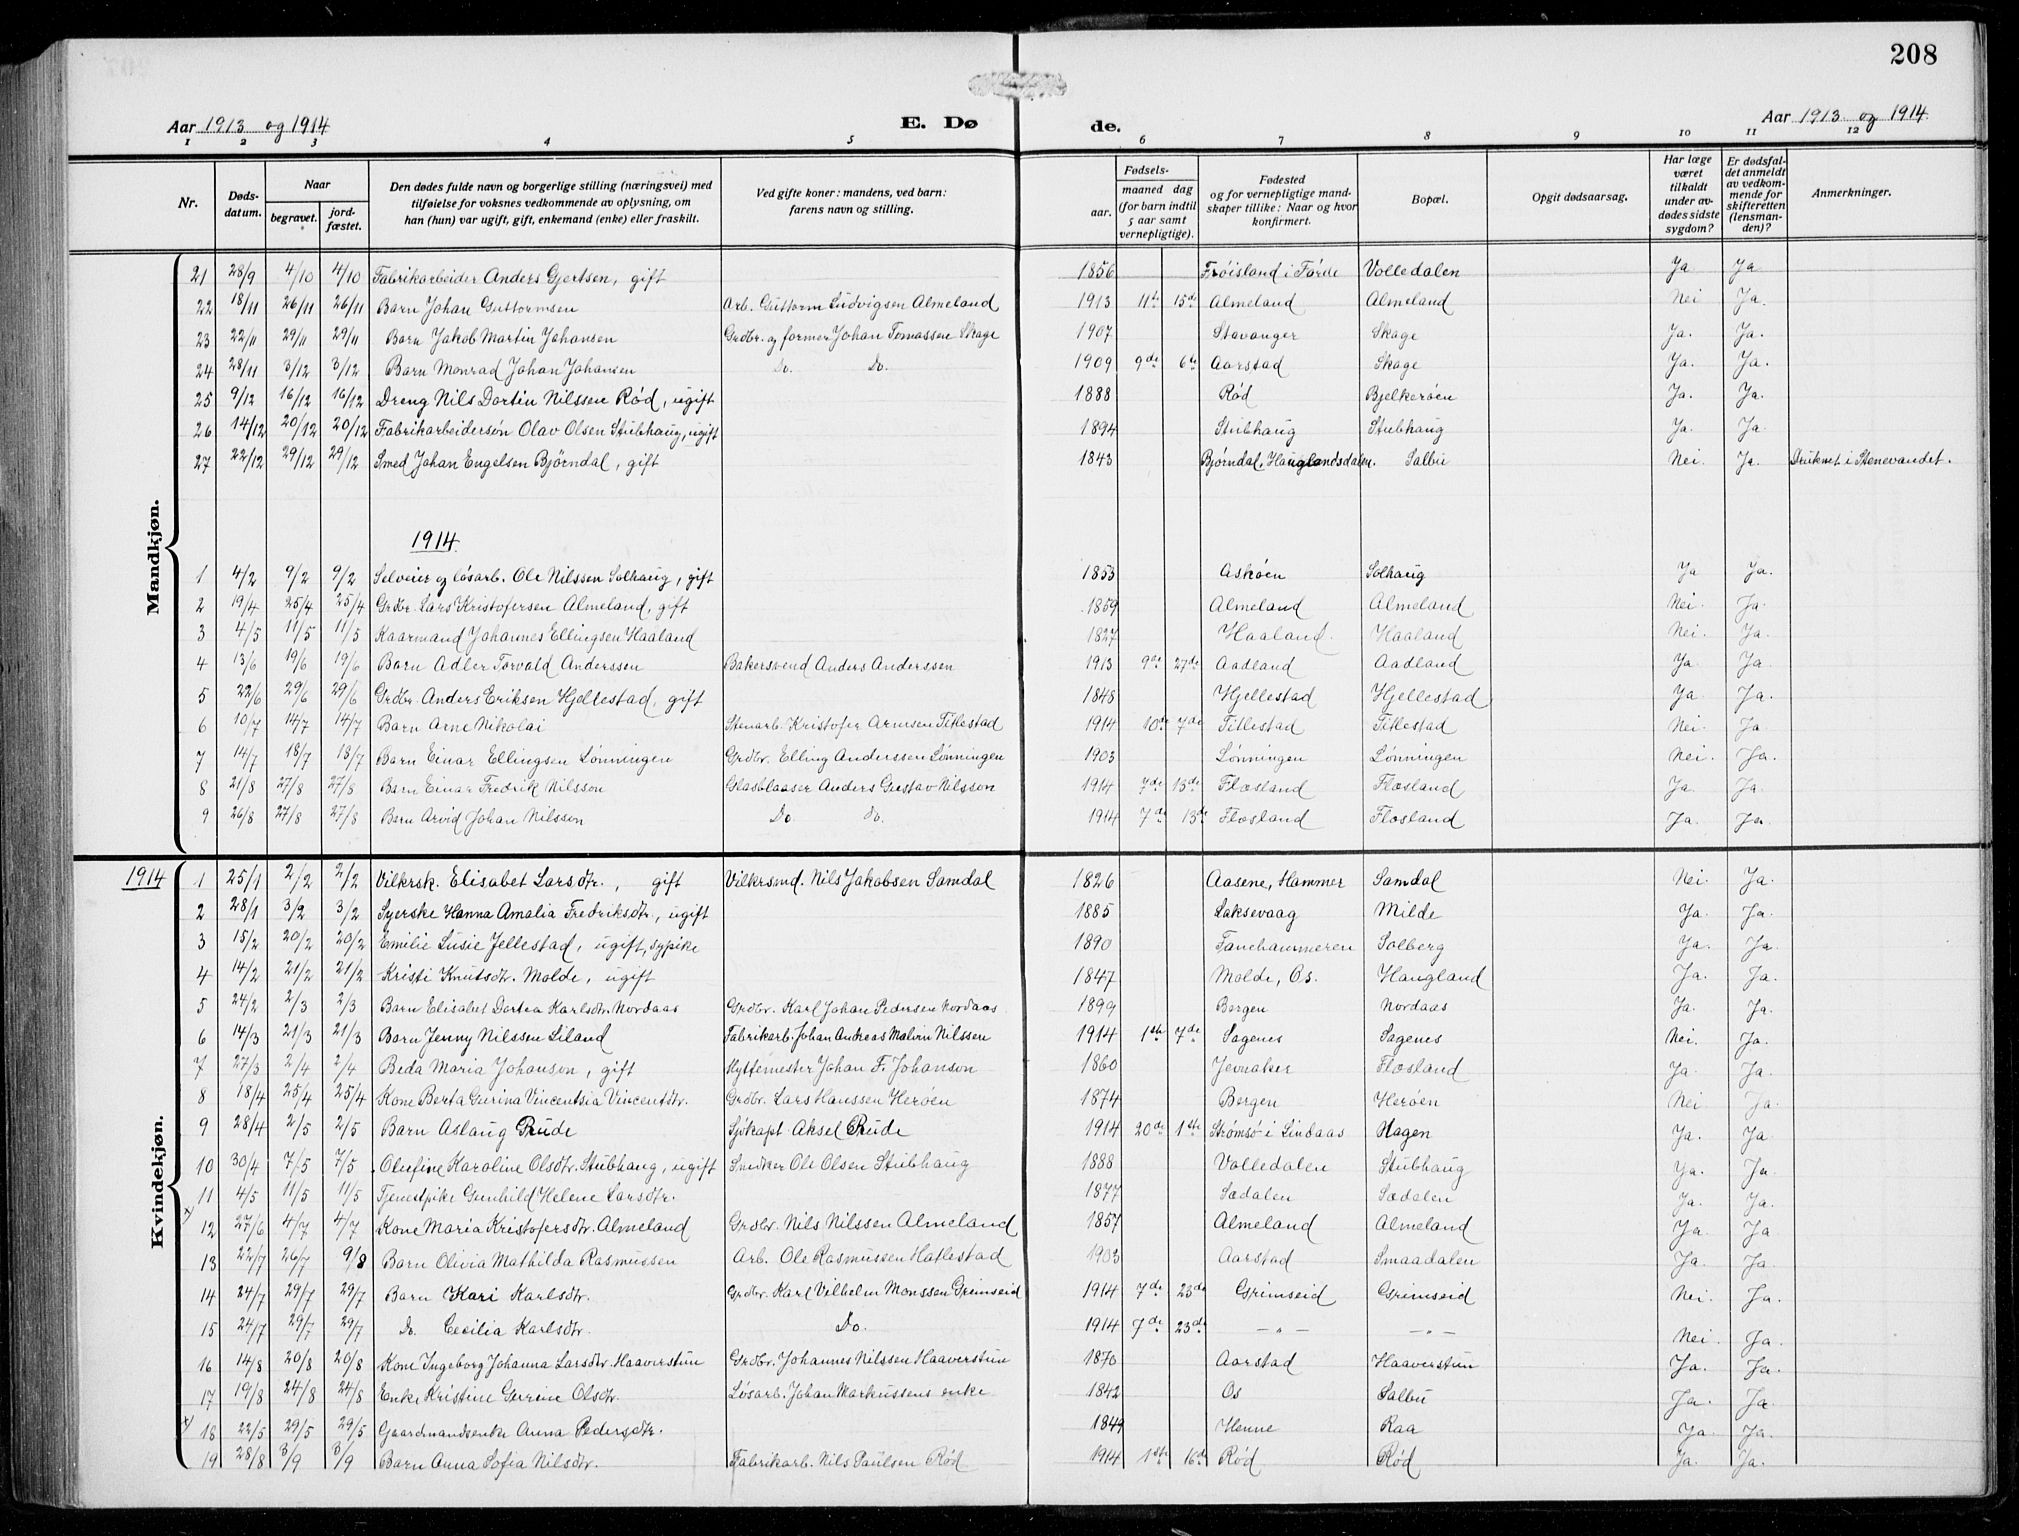 208
Aar 1913 og 1914
E. Dø
de.
Aar 1913 og 1914.
1 2 3 4 5 6 7 8 9 10 11 12
Nr.
Døds-
datum.
Naar
begravet.
jord-
fæstet.
Den dødes fulde navn og borgerlige stilling (næringsvei) med
tilføielse for voksnes vedkommende av oplysning, om
han (hun) var ugift, gift, enkemand (enke) eller fraskilt.
Ved gifte koner: mandens, ved barn:
farens navn og stilling.
Fødsels-
aar.
maaned dag
(for barn indtil
5 aar samt
vernepligtige).
Fødested
og for vernepligtige mand-
skaper tillike: Naar og hvor
konfirmert.
Bopæl.
Opgit dødsaarsag.
Har læge
været
tilkaldt
under av-
dødes sidste
sygdom?
Er dødsfal-
det anmeldt
av vedkom-
mende for
skifteretten
(lensman-
den)?
Anmerkninger.
Mandkjøn.
21 28/9 4/10 4/10 Fabrikarbeider Anders Gjertsen, gift 1856 Frøisland i Førde Volledalen Ja Ja
22 18/11 26/11 26/11 Barn Johan Guttormsen Arb. Guttorm Ludvigsen Almeland 1913 11te 15de Almeland Almeland Nei Ja.
23 22/11 29/11 29/11 Barn Jakob Martin Johansen Grdbr. og former Johan Tomassen Skage 1907 Stavanger Skage Ja. Ja.
24 28/11 3/12 3/12 Barn Monrad Johan Johansen Do. Do. 1909 9de 6te Aarstad Skage Ja. Ja.
25 9/12 16/12 16/12 Dreng Nils Dortin Nilssen Rød, ugift 1888 Rød Bjelkerøen Ja. Ja.
26 14/12 20/12 20/12 Fabrikarbeidersøn Olav Olsen Stubhaug, ugift 1894 Stubhaug Stubhaug Ja. Ja.
27 22/12 29/12 29/12 Smed Johan Engelsen Bjørndal, gift 1843 Bjørndal, Hauglandsdalen. Salbu Nei. Ja. Druknet i Stenevandet.
1914
1 4/2 9/2 9/2 Selveier og løsarb. Ole Nilssen Solhaug, gift 1853 Askøen Solhaug Ja Ja.
2 19/4 25/4 25/4 Grdbr. Lars Kristofersen Almeland, gift 1859 Almeland Almeland Nei. Ja.
3 4/5 11/5 11/5 Kaarmand Johannes Ellingsen Haaland 1827 Haaland. Haaland Nei. Ja.
4 13/6 19/6 19/6 Barn Adler Torvald Anderssen Bakersvend Anders Anderssen 1913 9de 27de Aadland Aadland Ja Ja.
5 22/6 29/6 29/6 Grdbr. Anders Eriksen Hjellestad, gift 1848 Hjellestad Hjellestad Ja Ja.
6 10/7 14/7 14/7 Barn Arne Nikolai Stenarb. Kristofer Arnesen Titlestad 1914 10de 7de Titlestad Titlestad Nei. Ja
7 14/7 18/7 18/7 Barn Einar Ellingsen Lønningen Grdbr. Elling Anderssen Lønningen 1903 Lønningen Lønningen Nei. Ja.
8 21/8 27/8 27/8 Barn Einar Fredrik Nilsson Glasblaaser Anders Gustav Nilsson 1914 7de 15de Flæsland Flæsland Ja. Ja.
9 26/8 27/8 27/8 Barn Arvid Johan Nilsson Do. Do. 1914 7de 13de Flæsland Flæsland Ja. Ja.
1914
Kvindekjøn.
1 25/1 2/2 2/2 Vilkersk. Elisabet Larsdtr., gift Vilkersmd. Nils Jakobsen Samdal 1826 Aasene, Hammer Samdal Nei. Ja.
2 28/1 3/2 3/2 Syerske Hanna Amalia Fredriksdtr, ugift 1885 Laksevaag Milde Ja. Ja.
3 15/2 20/2 20/2 Emilie Lusie Jellestad, ugift, sypike 1890 Fanehammeren Solberg Ja. Ja.
4 14/2 21/2 21/2 Kristi Knutsdtr. Molde, ugift 1847 Molde, Os. Haugland Ja. Ja.
5 24/2 2/3 2/3 Barn Elisabet Dortea Karlsdtr. Nordaas Grdbr. Karl Johan Pedersen Nordaas. 1899 Bergen Nordaas Ja. Ja.
6 14/3 21/3 21/3 Barn Jenny Nilssen Liland Fabrikarb. Johan Andreas Malvin Nilssen 1914 1ste 7de Sagenes Sagenes Nei. Ja.
7 27/3 2/4 2/4 Beda Maria Johanson, gift Hyttemester Johan F. Johanson 1860 Jevnaker Flæsland Ja. Ja.
8 18/4 25/4 25/4 Kone Berta Gurina Vincentsia Vincentsdtr. Grdbr. Lars Hanssen Herøen 1874 Bergen Herøen Nei Ja.
9 28/4 2/5 2/5 Barn Aslaug Prüde Sjökapt Aksel Prüde 1914 20de 1ste Strømsø i Lindaas Hagen Ja. Ja.
10 30/4 7/5 7/5 Olufine Karoline Olsdtr. Stubhaug, ugift Snedker Ole Olsen Stubhaug 1888 Volledalen Stubhaug Ja. Ja.
11 4/5 11/5 11/5 Tjenestpike Gunhild Helene Larsdtr. 1877 Sædalen Sædalen Ja. Ja.
12 27/6 4/7 4/7 Kone Maria Kristofersdtr. Almeland Grdbr. Nils Nilssen Almeland 1857 Almeland Almeland Ja. Ja.
13 22/7 26/7 9/8 Barn Olivia Mathilda Rasmussen Arb. Ole Rasmussen Hatlestad 1903 Aarstad Smaadalen Ja. Ja.
14 24/7 29/7 29/7 Barn Kari Karlsdtr. Grdbr. Karl Vilhelm Monssen Grimseid 1914 7de 23de Grimseid Grimseid Nei. Ja.
15 24/7 29/7 29/7 Do. Cecilia Karlsdtr. Do. 1914 7de 23de —„— —„— Nei. Ja.
16 14/8 20/8 20/8 Kone Ingeborg Johanna Larsdtr. Haaverstun Grdbr. Johannes Nilssen Haaverstun 1870 Aarstad Haaverstun Ja. Ja.
17 19/8 24/8 24/8 Enke Kristine Gurine Olsdtr. Løsarb. Johan Markussens enke 1842 Os Salbu Ja. Ja
18 22/5 29/5 29/5 Gaardmandsenke Anna Pedersdtr. 1849 Henne Raa Ja. Ja.
19 28/8 3/9 3/9 Barn Anna Sofia Nilsdtr. Fabrikarb. Nils Paulsen Rød 1914 1ste 16de Rød Rød Ja. Ja.